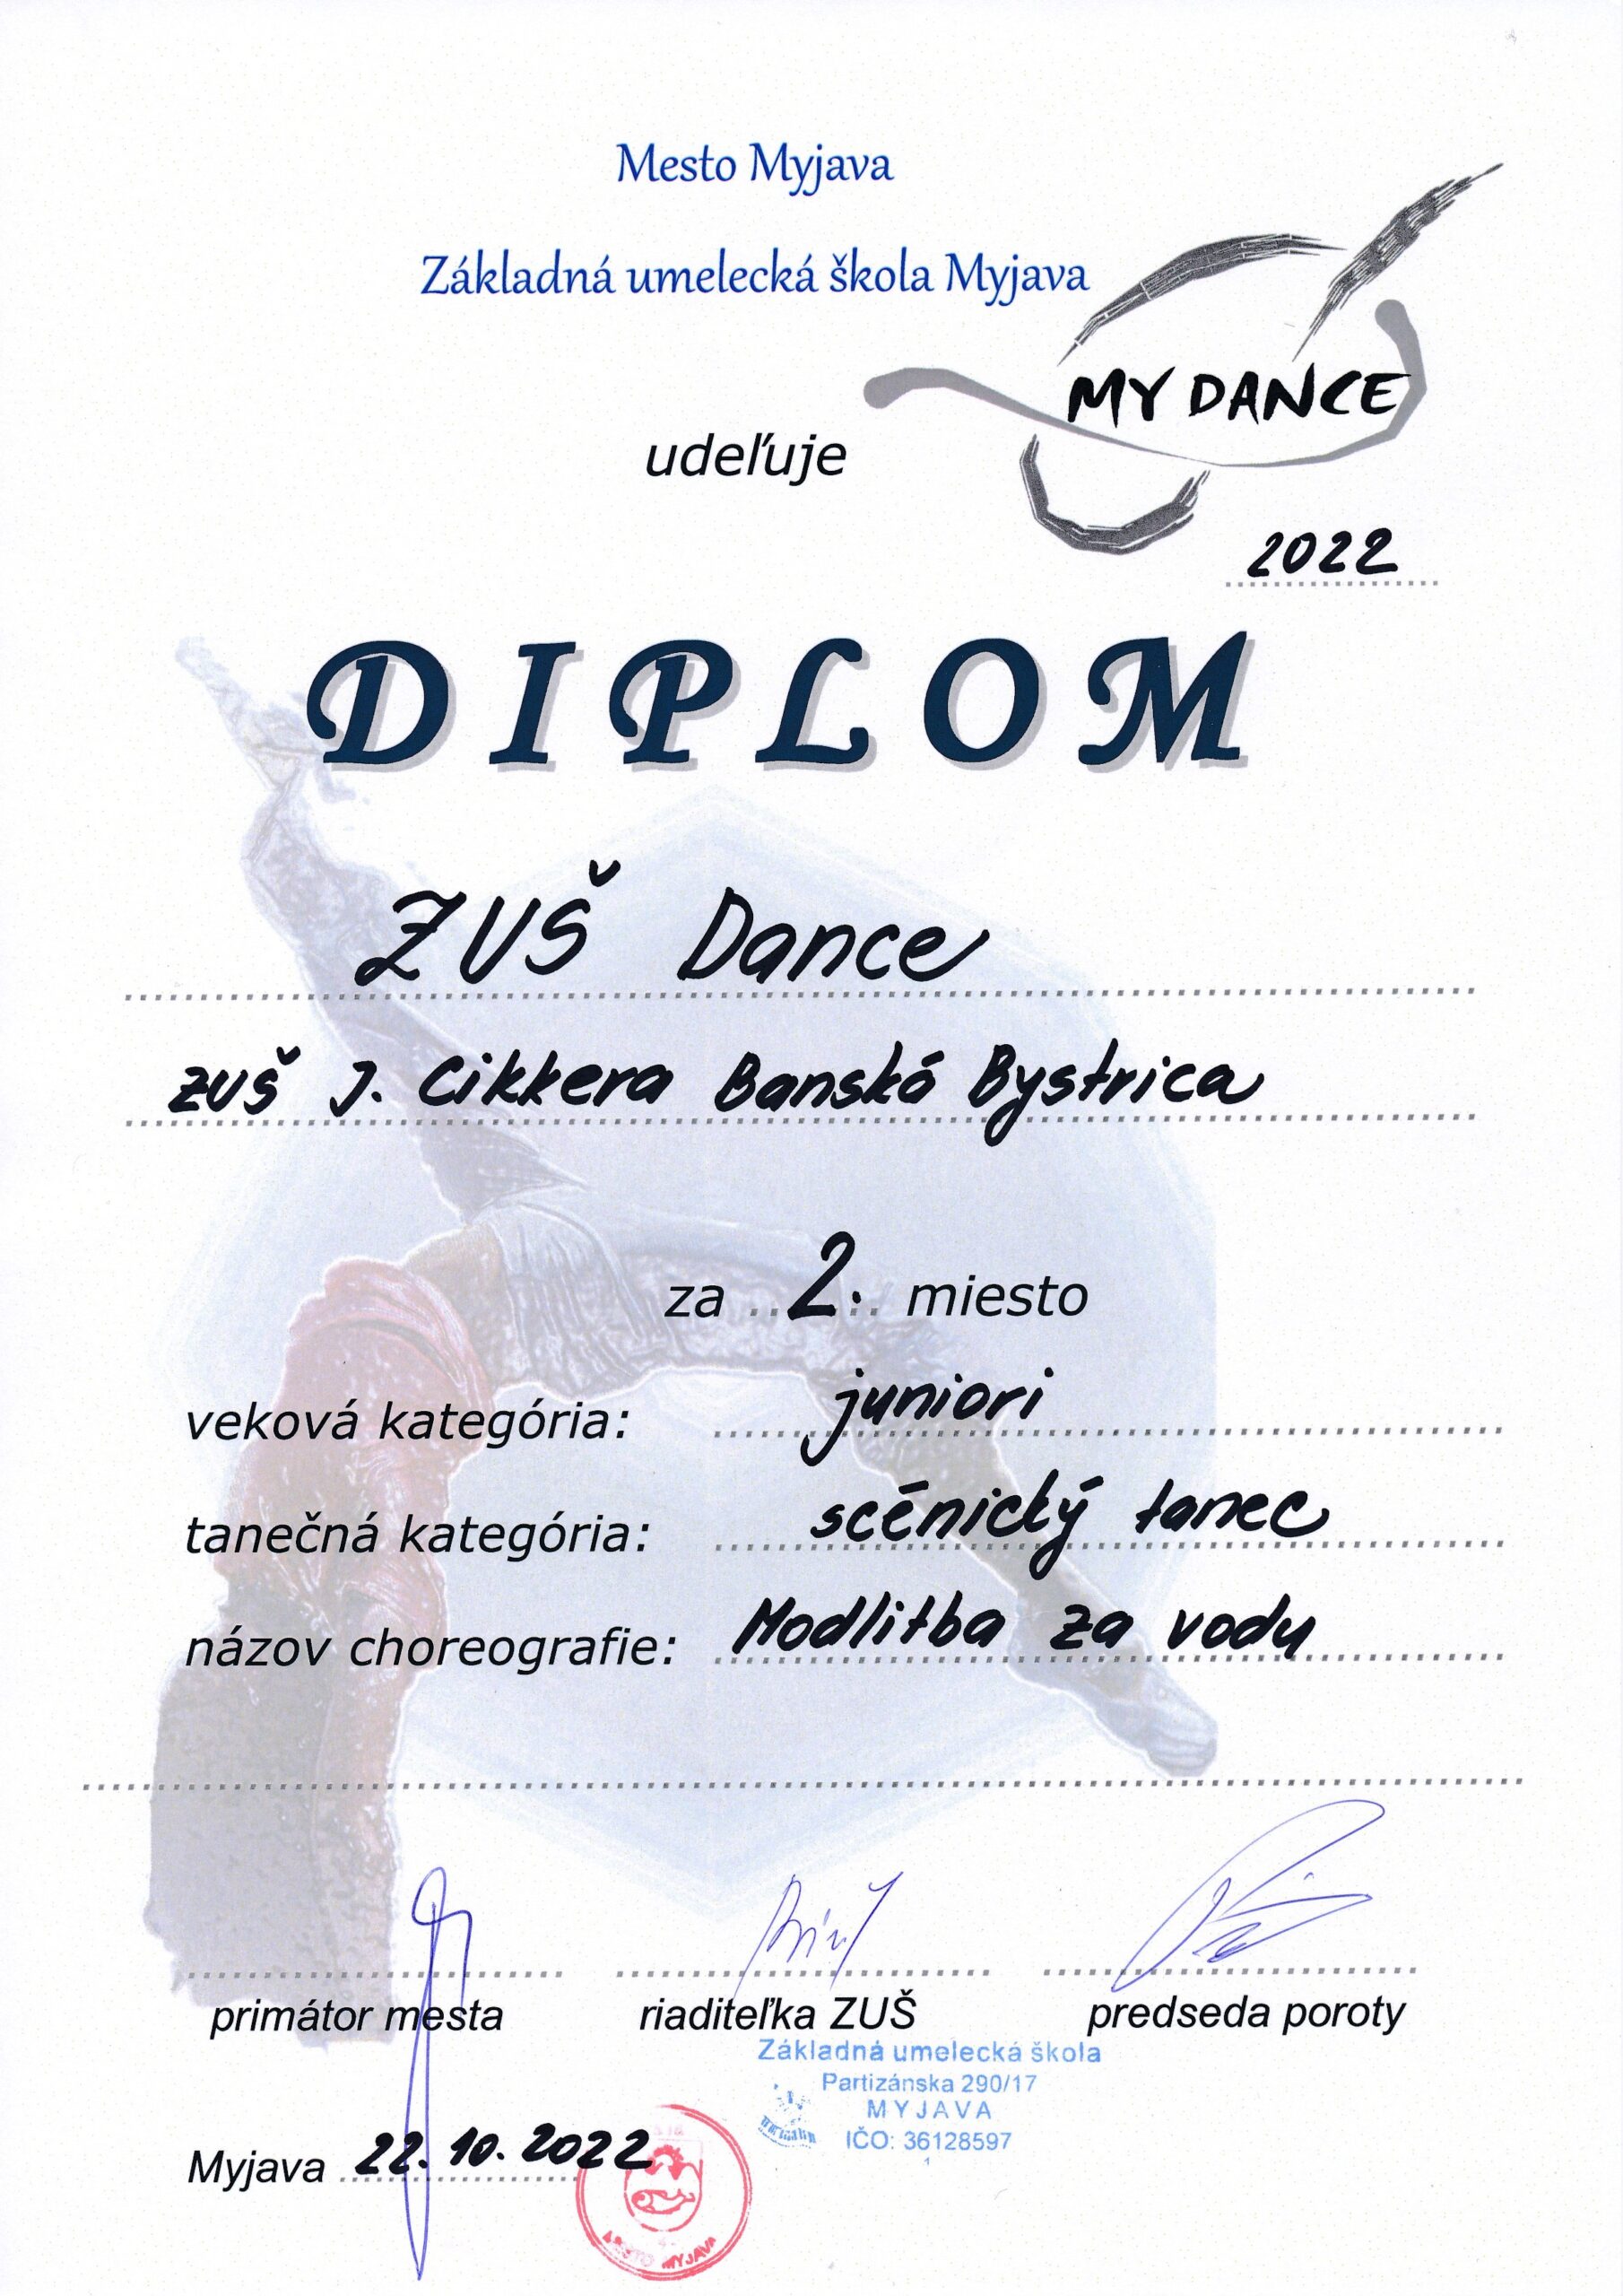 Mesto Myjava
Základná umelecká škola Myjava
MY DANCE
udeľuje
2022
DIPLOM
ZUŠ Dance
ZUŠ J. Cikkera Banská Bystrica
za 2. miesto
veková kategória: juniori
tanečná kategória: scénický tanec
názov choreografie: Modlitba za vodu
primátor mesta riaditeľka ZUŠ predseda poroty
Základná umelecká škola
Partizánska 290/17
MYJAVA
IČO: 36128597
1
Myjava 22. 10. 2022
MESTO MYJAVA